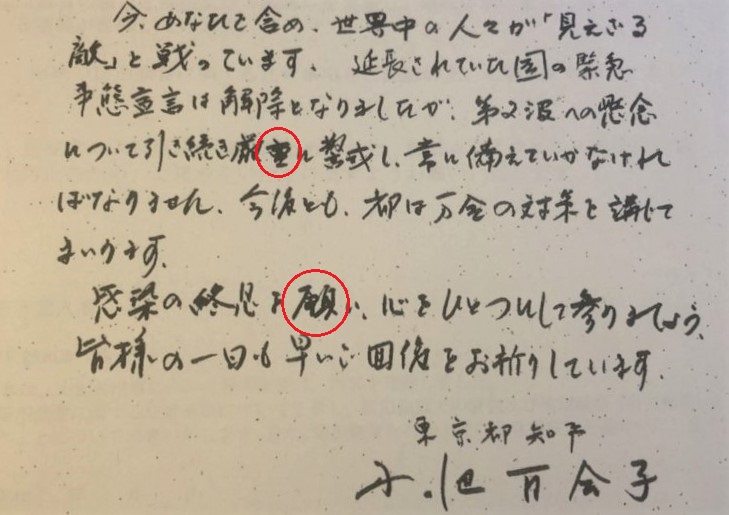 今、あなたも含め、世界中の人々が「見えざる
敵」と戦っています。延長されていた国の緊急
事態宣言は解除となりましたが、第2波への懸念
について引き続き厳重に警戒し、常に備えていかなけれ
ばなりません。今後とも、都は万全の対策を講じて
まいります。
感染の終息を願い、心をひとつにして参りましょう。
皆様の一日も早いご回復をお祈りしています。
東京都知事
小池百合子